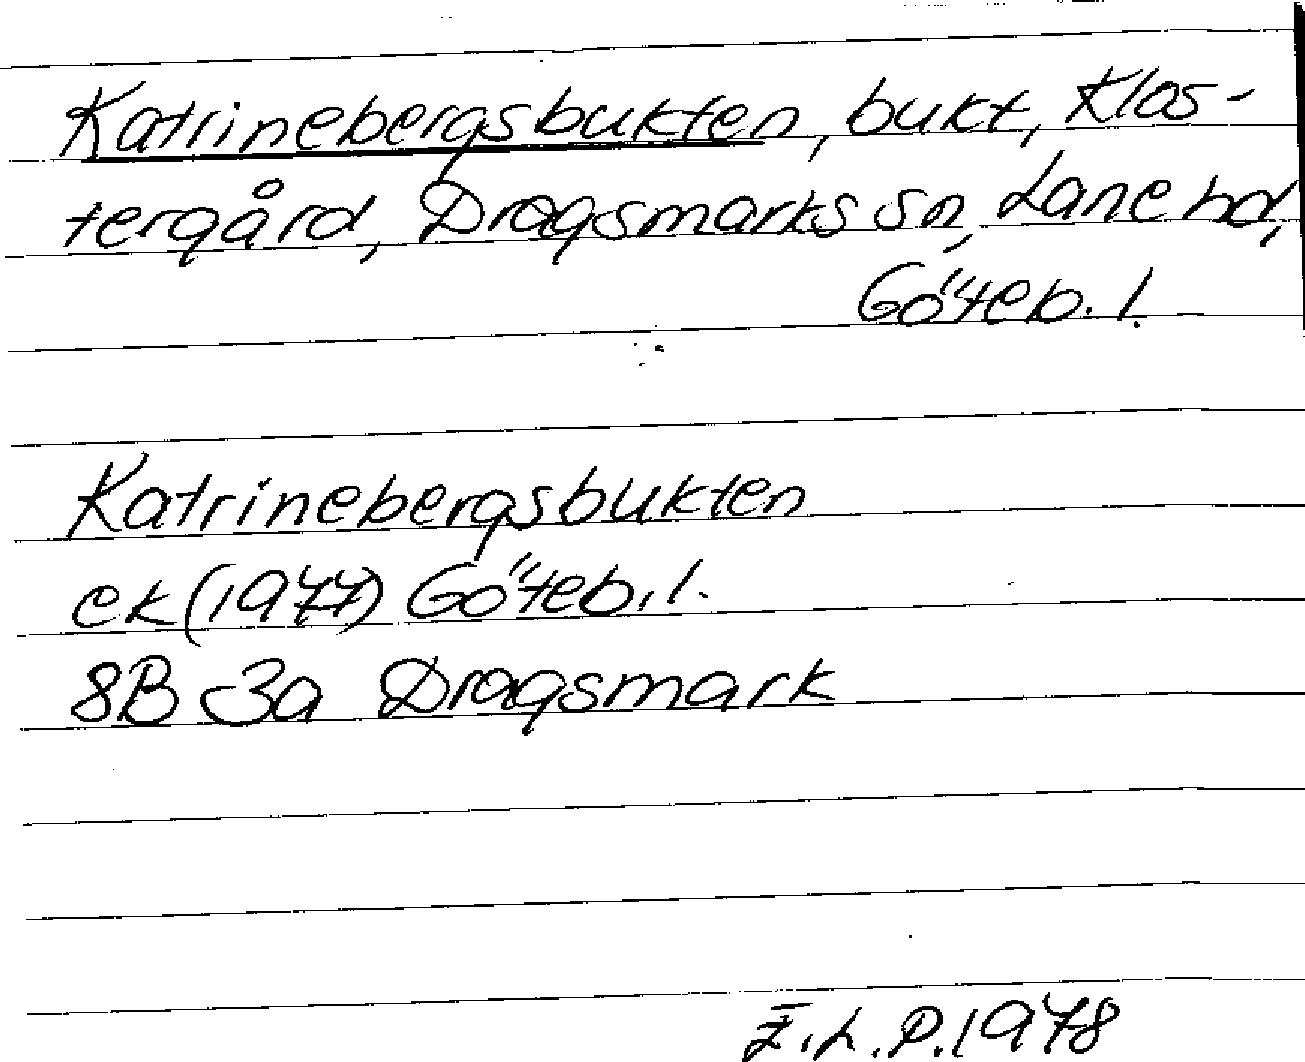 Katrinebergsbukten, bukt, Klos-
tergård, Dragsmarks sn, Lane hd,
Göteb. l.
Katrinebergsbukten
ek (1977) Göteb. l.
8B 3a Dragsmark
E. L. P. 1978